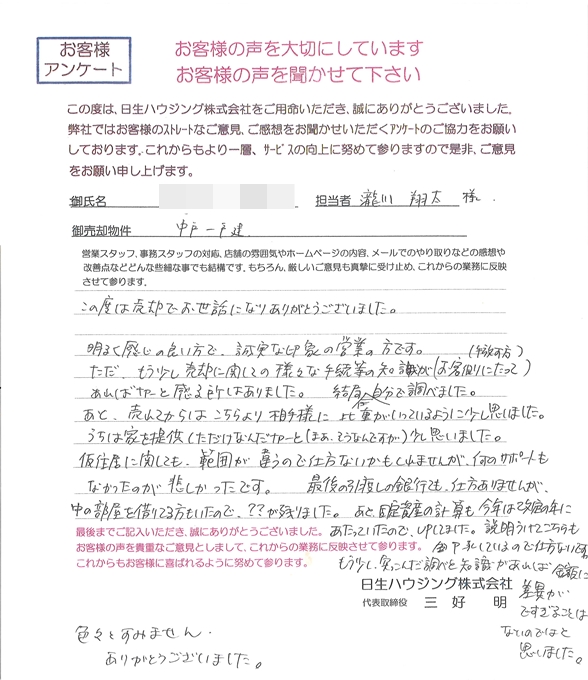 お客様
アンケート
お客様の声を大切にしています
お客様の声を聞かせて下さい
この度は、日生ハウジング株式会社をご用命いただき、誠にありがとうございました。
弊社ではお客様のストレートなご意見、ご感想をお聞かせいただくアンケートのご協力をお願い
しております。これからもより一層、サービスの向上に努めて参りますので是非、ご意見
をお願い申し上げます。
御氏名 担当者 瀧川 翔太 様
御売却物件 中戸一戸建
営業スタッフ、事務スタッフの対応、店舗の雰囲気やホームページの内容、メールでのやり取りなどの感想や
改善点などどんな些細な事でも結構です。もちろん、厳しいご意見も真摯に受け止め、これからの業務に反映
させて参ります。
この度は売却でお世話になりありがとうございました。
明るく感じの良い方で、誠実な印象の営業の方です。
ただ、もう少し売却に関しての様々な手続等の知識が(お客側にたって)
あればなーと感る所はありました。 結局自分で調べました。
あと、売れてからはこちらより相手様に比重がいっているように少し思いました。
うちは家を提供(ただけなんだなーと(まあ、そうなんですが)少し思いました。
仮住居に関しても、範囲が違うので仕方ないかもしれませんが、何のサポートも
なかったのが悲しかったです。 最後の引渡しの銀行でも、仕方ありませんが、
中の部屋を借りてる方もいたので、??が残りました。あと、固定資産の計算も今年は改定の年に
あたっていたので、UPしてました。説明うけてこちらも
最後までご記入いただき、誠にありがとうございました。
お客様の声を貴重なご意見としまして、これからの業務に反映させて参ります。
これからもお客様に喜ばれるように努めて参ります。
もう少し突っこんだ調べと知識があれば金額に
差異が
ですぎることは
ないのではと
思いました。
日生ハウジング株式会社
代表取締役 三好 明
色々とすみません。
ありがとうございました。